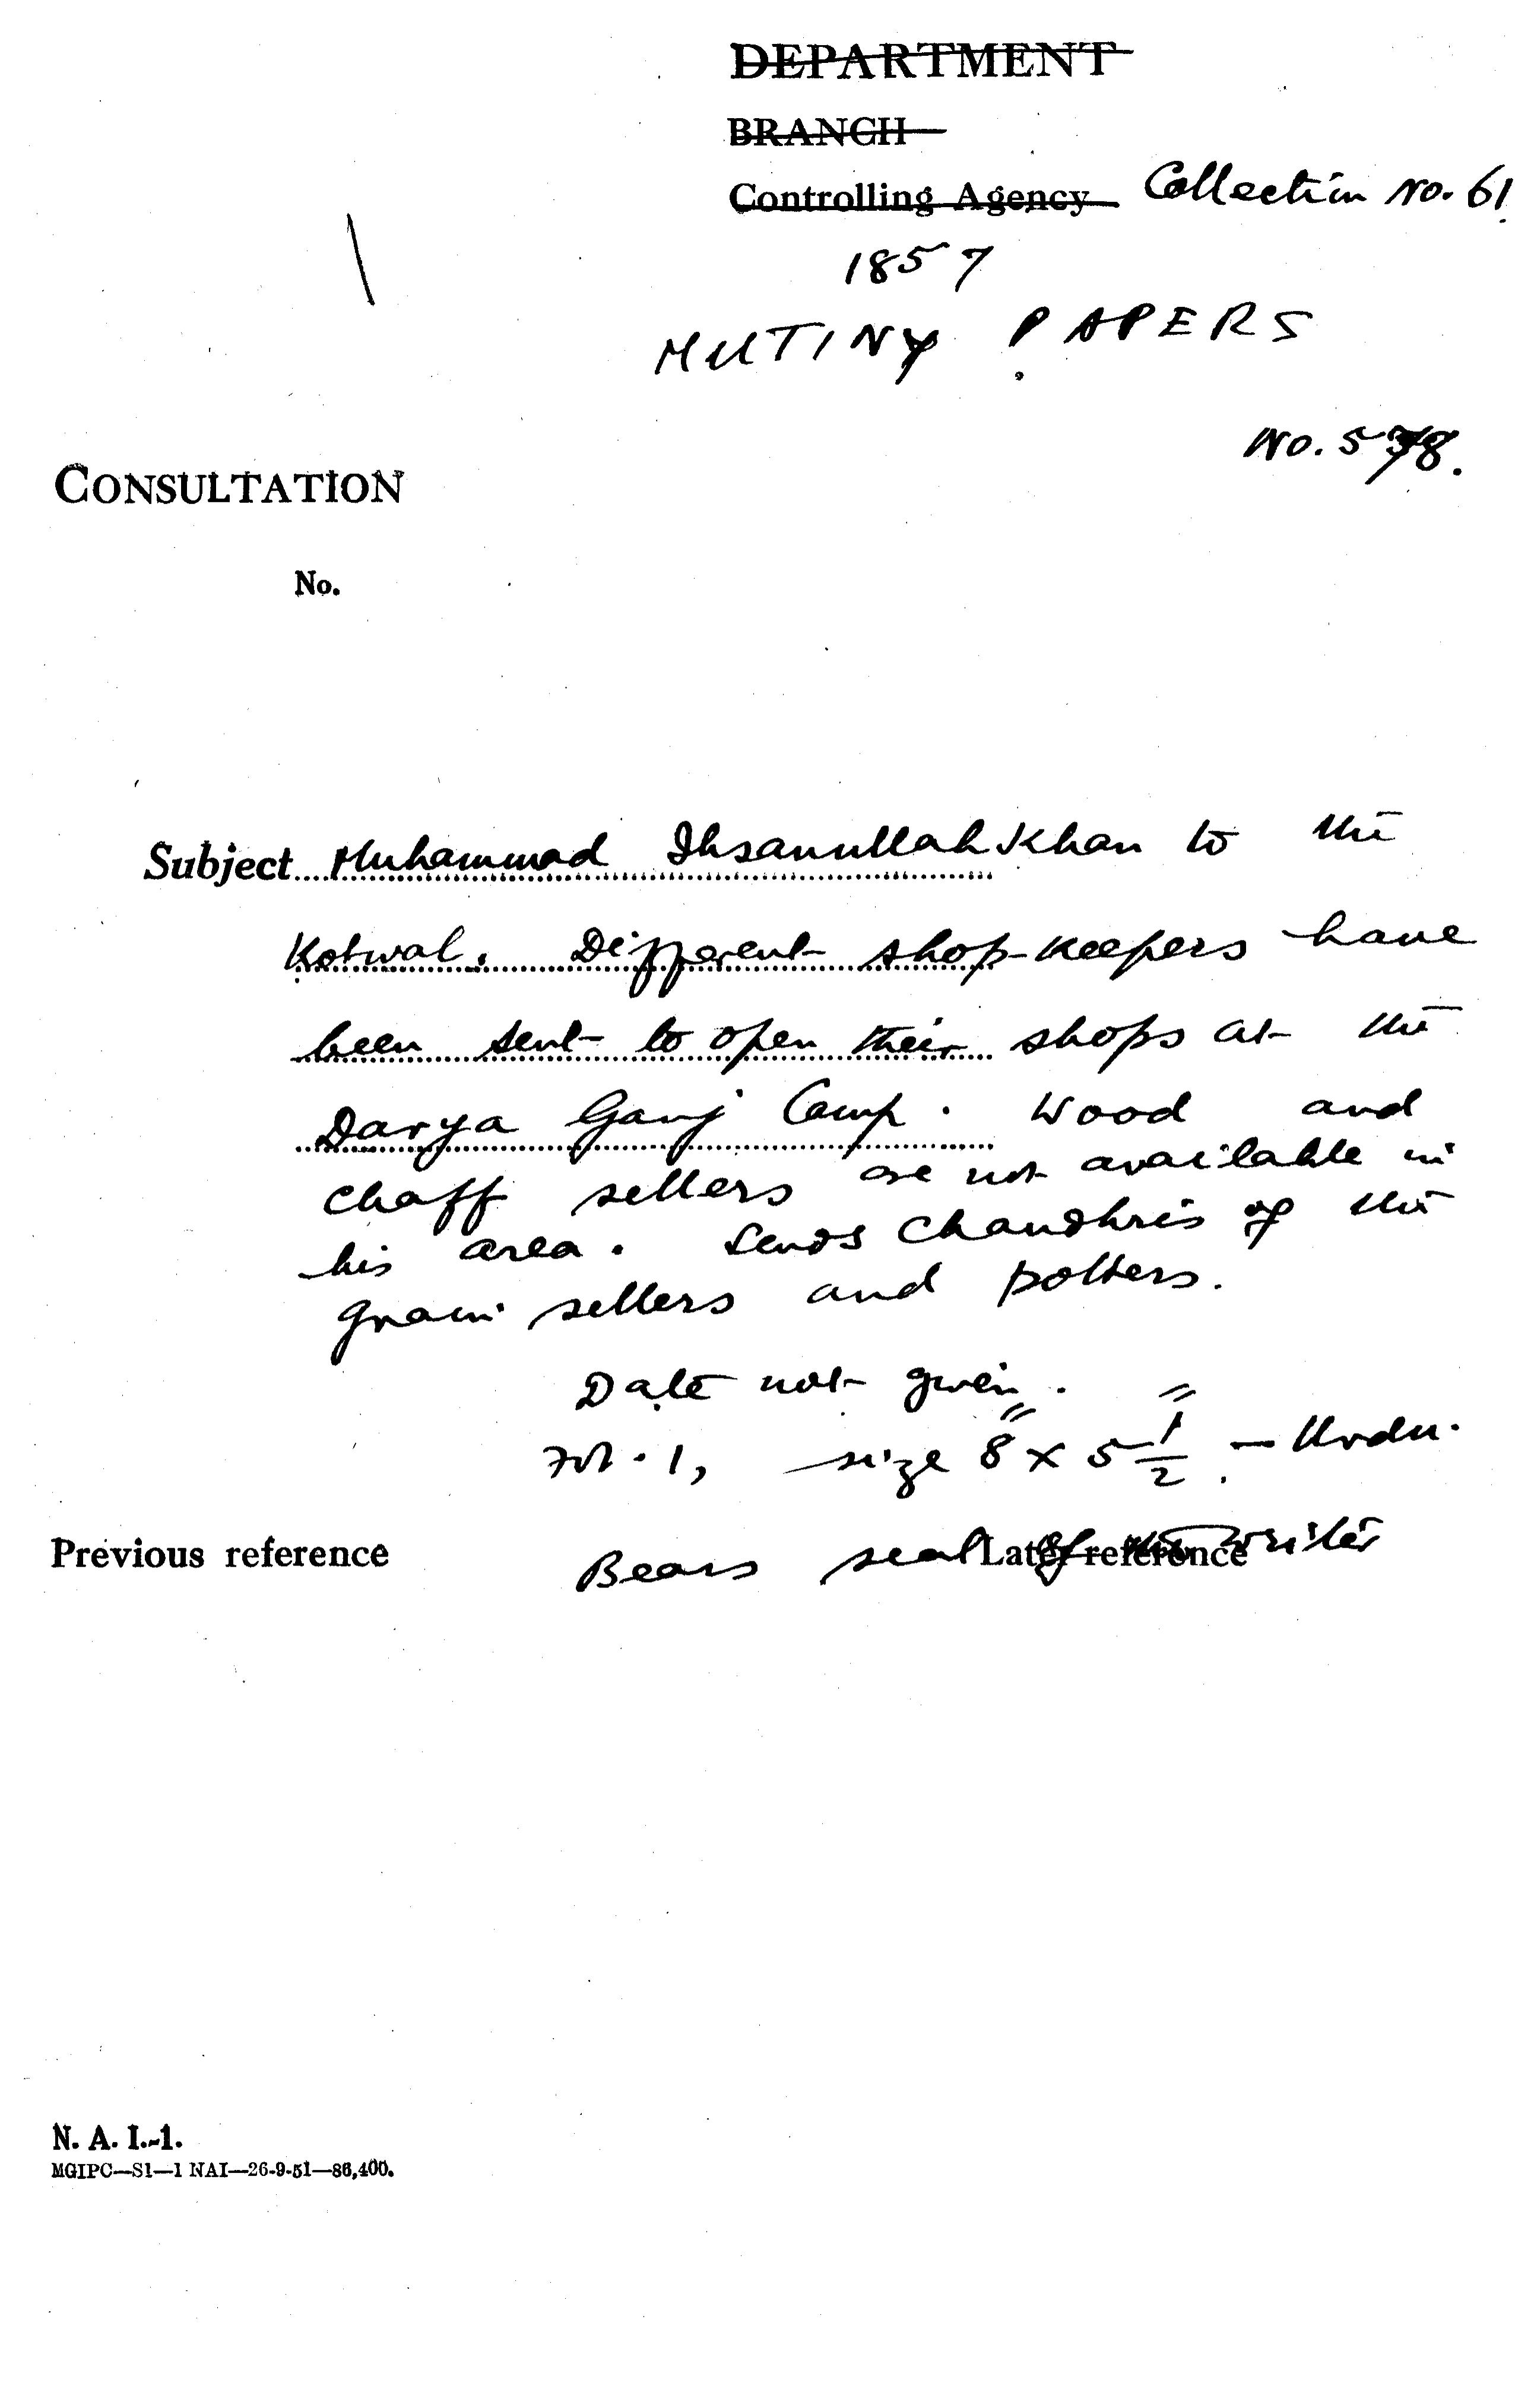 DEPARTMENT
BRANCH
Controlling Agency Collection No. 61
1857
MUTINY PAPERS
No. 578.
CONSULTATION
No.
Subject Muhammad Ihsanullah Khan to the
Kotwal. Different shop-keepers have
been sent to open their shops at the
Darya Ganj Camp. Wood and
chaff sellers are not available in
his area. Sends Chaudhris of the
grain sellers and potters.
Date not given.
Fol. 1, size 8" x 5 1/2" – Urdu.
Previous reference Bears seal of the writer Later reference
N. A. I.-1.
MGIPC—S1—1 NAI—26-9-51—86,400.